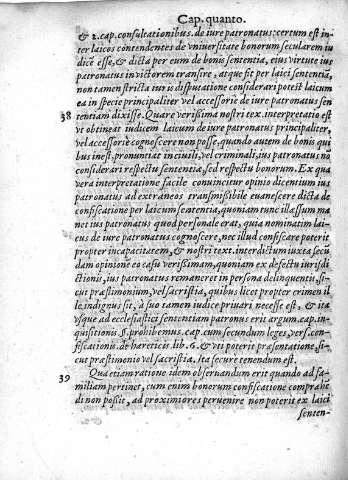 Cap. quanto.
& 2. cap. consultationibus. de iure patronatus: certum est in-
ter laicos contendentes de vniuersitate bonorum secularem iu
dicē esse, & dicta per eum de bonis sententia, eius virtute ius
patronatus in victorem transire, atque fit per laici sententiā,
non tamen stricta iuris disputatione considerari potest laicum
ea in specie principaliter vel accessoriè de iure patronatus sen
38 tentiam dixisse. Quare verissima nostri tex. interpretatio est
vt obtineat iudicem laicum de iure patronatus principaliter,
vel accessoriè cognoscere non posse, quando autem de bonis qui
bus inest, pronuntiat in ciuili, vel criminali, ius patronatus no
considerari respectu sententiæ, sed respectu bonorum. Ex qua
vera interpretatione facile conuincitur opinio dicentium ius
patronatus ad extraneos transmissibile euanescere dicta de
confiscatione per laicum sententia, quoniam tunc illæsum ma
net ius patronatus quod personale erat, quia nominatim lai-
cus de iure patronatus cognoscere, nec illud confiscare poterit
propter incapacitatem, & nostri text. interdictum iuxta secū
dam opinione eo casu verissimam, quoniam ex defectu iurisdi
ctionis, ius patronatus remaneret in persona delinquentis, si-
cut præstimonium, vel sacristia, quibus licet propter crimen il
le indignus sit, à suo tamen iudice priuari necesse est, & ita
vsque ad ecclesiastici sententiam patronus erit argum. cap. in-
quisitionis. §. prohibemus. cap. cum secundum leges, vers. con-
fiscationis. de hæreticis lib. 6. & vti poterit præsentatione, si-
cut præstimonio vel sacristia, ita secure tenendum est.
39 Qua etiam ratione idem obseruandum erit quando ad fa-
miliam pertinet, cum enim bonorum confiscatione compræhē
di non possit, ad proximiores peruenire non poterit ex laici
senten-